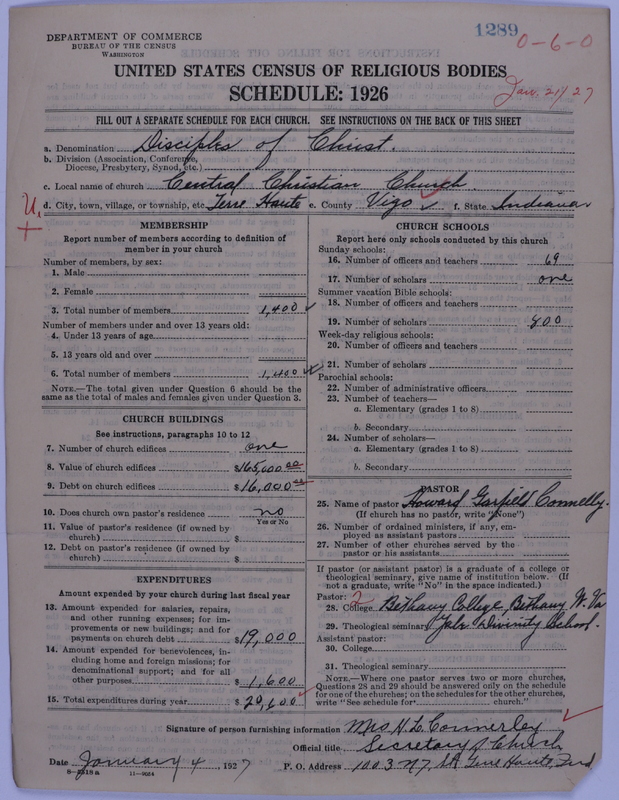 DEPARTMENT OF COMMERCE
BUREAU OF THE CENSUS
WASHINGTON
1289
0-6-0
UNITED STATES CENSUS OF RELIGIOUS BODIES
SCHEDULE: 1926
Jan. 21/27
FILL OUT A SEPARATE SCHEDULE FOR EACH CHURCH. SEE INSTRUCTIONS ON THE BACK OF THIS SHEET
a. Denomination Disciples of Christ.
b. Division (Association, Conference, Diocese, Presbytery, Synod, etc.)
c. Local name of church Central Christian Church
d. City, town, village, or township, etc. Terre Haute e. County Vigo f. State Indiana
U
MEMBERSHIP
Report number of members according to definition of
member in your church
Number of members, by sex:
1. Male
2. Female
3. Total number of members 1,400
Number of members under and over 13 years old:
4. Under 13 years of age
5. 13 years old and over
6. Total number of members 1,400
NOTE.—The total given under Question 6 should be the
same as the total of males and females given under Question 3.
CHURCH BUILDINGS
See instructions, paragraphs 10 to 12
7. Number of church edifices one
8. Value of church edifices $165,000.00
9. Debt on church edifices $16,000.00
10. Does church own pastor's residence no
Yes or No
11. Value of pastor's residence (if owned by
church) $
12. Debt on pastor's residence (if owned by
church) $
EXPENDITURES
Amount expended by your church during last fiscal year
13. Amount expended for salaries, repairs,
and other running expenses; for im-
provements or new buildings; and for
payments on church debt $19,000
14. Amount expended for benevolences, in-
cluding home and foreign missions; for
denominational support; and for all
other purposes $1,600
15. Total expenditures during year $20,600
CHURCH SCHOOLS
Report here only schools conducted by this church
Sunday schools:
16. Number of officers and teachers 69
17. Number of scholars one
Summer vacation Bible schools:
18. Number of officers and teachers
19. Number of scholars 800
Week-day religious schools:
20. Number of officers and teachers
21. Number of scholars
Parochial schools:
22. Number of administrative officers
23. Number of teachers—
a. Elementary (grades 1 to 8)
b. Secondary
24. Number of scholars—
a. Elementary (grades 1 to 8)
b. Secondary
PASTOR
25. Name of pastor Howard Garfield Connelly.
(If church has no pastor, write "None")
26. Number of ordained ministers, if any, em-
ployed as assistant pastors
27. Number of other churches served by the
pastor or his assistants
If pastor (or assistant pastor) is a graduate of a college or
theological seminary, give name of institution below. (If
not a graduate, write "No" in the space indicated.)
Pastor: 2
28. College Bethany College Bethany W. Va
29. Theological seminary Yale Divinity School.
Assistant pastor:
30. College
31. Theological seminary
NOTE.—Where one pastor serves two or more churches,
Questions 28 and 29 should be answered only on the schedule
for one of the churches; on the schedules for the other churches,
write "See schedule for church."
Signature of person furnishing information Mrs H. L. Connerley
Official title Secretary of Church
Date January 4, 1927 P. O. Address 1003 N 7 St Terre Haute Ind
8—2518 a 11—9024